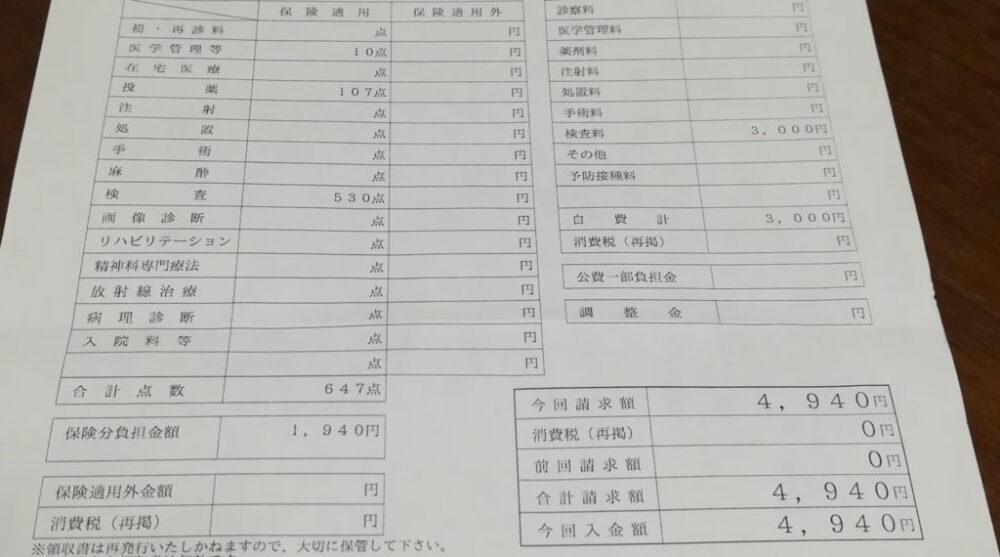 保険適用 保険適用外
初・再診料 点 円
医学管理等 10点 円
在宅医療 点 円
投薬 107点 円
注射 点 円
処置 点 円
手術 点 円
麻酔 点 円
検査 530点 円
画像診断 点 円
リハビリテーション 点 円
精神科専門療法 点 円
放射線治療 点 円
病理診断 点 円
入院料等 点 円
点 円
合計点数 647点
保険分負担金額 1,940円
保険適用外金額 円
消費税(再掲) 円
※領収書は再発行いたしかねますので、大切に保管して下さい。
診察料 円
医学管理料 円
薬剤料 円
注射料 円
処置料 円
手術料 円
検査料 3,000円
その他 円
予防接種料 円
円
自費計 3,000円
消費税(再掲) 円
公費一部負担金 円
調整金 円
今回請求額 4,940円
消費税(再掲) 0円
前回請求額 0円
合計請求額 4,940円
今回入金額 4,940円